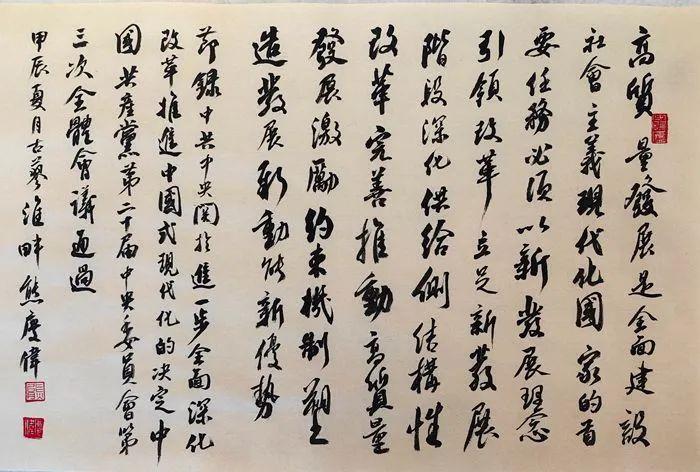 高質量發展是全面建設
社會主義現代化國家的首
要任務必須以新發展理念
引領改革立足新發展
階段深化供給側結構性
改革完善推動高質量
發展激勵約束機制塑
造發展新動能新優勢
節錄中共中央関於進一步全面深化
改革推進中國式現代化的决定中
國共產黨第二十届中央委員會第
三次全體會議通過
甲辰夏月古蓼淮畔熊慶偉